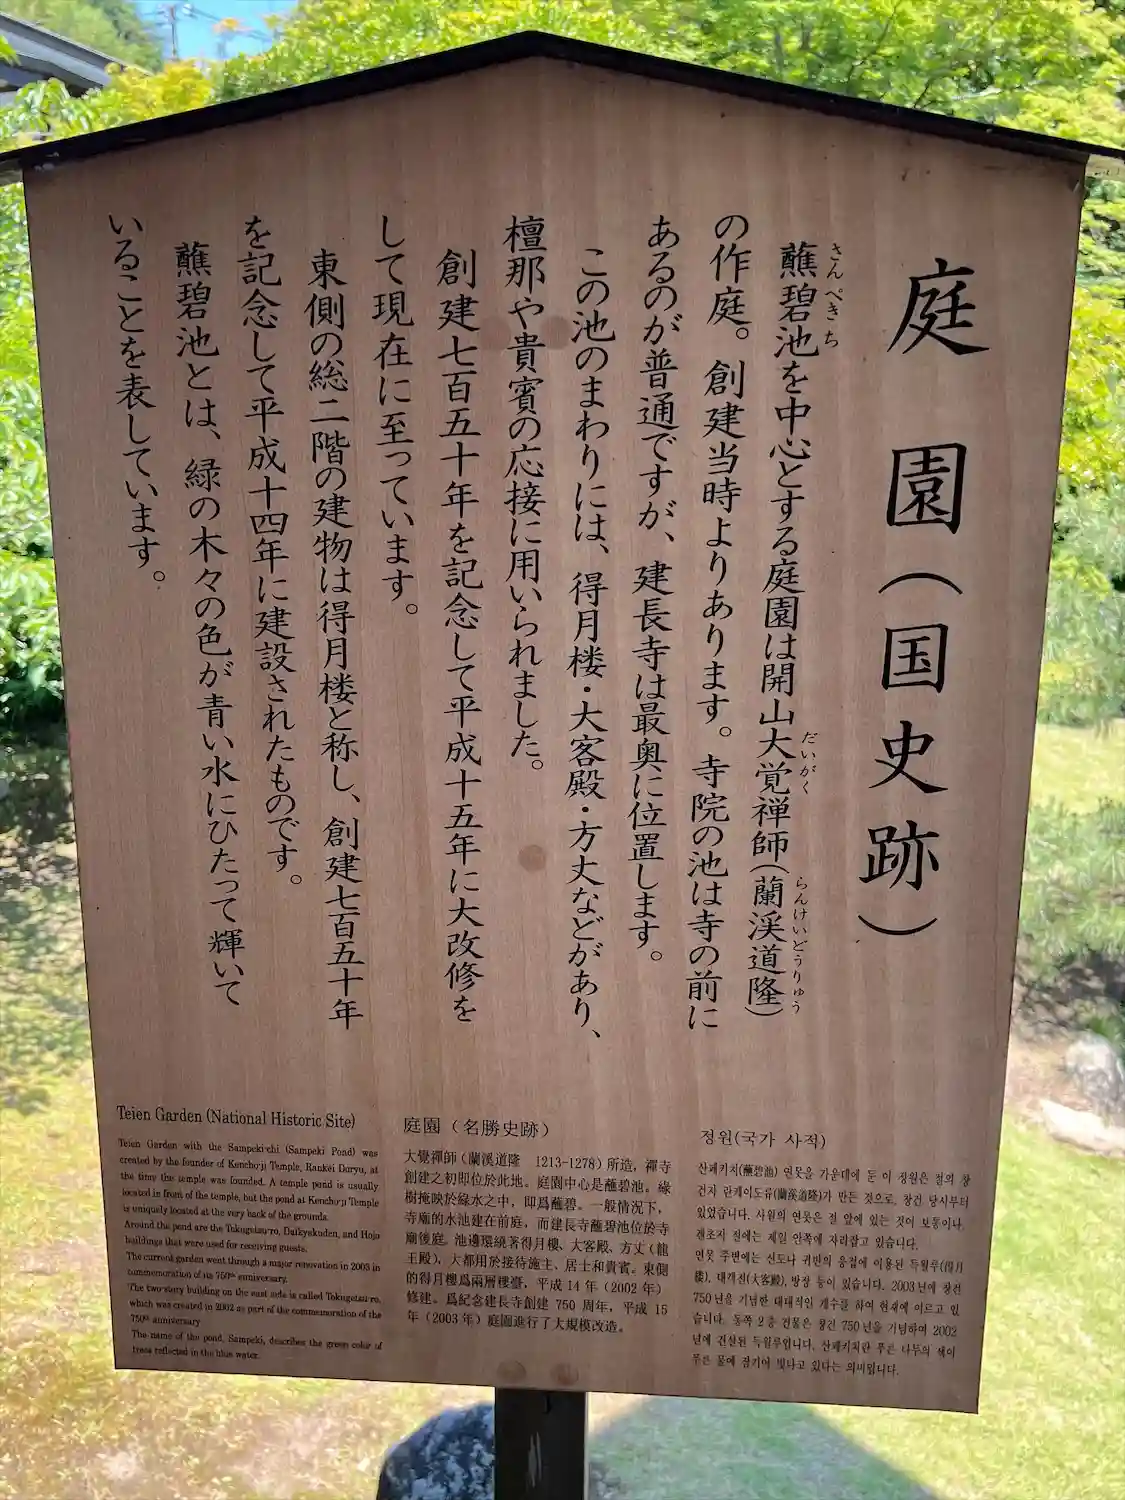 庭園（国史跡）
さんぺきち
蘸碧池を中心とする庭園は開山大覚禅師（蘭渓道隆）
だいがく
らんけいどうりゅう
の作庭。創建当時よりあります。寺院の池は寺の前に
あるのが普通ですが、建長寺は最奥に位置します。
この池のまわりには、得月楼・大客殿・方丈などがあり、
檀那や貴賓の応接に用いられました。
創建七百五十年を記念して平成十五年に大改修を
して現在に至っています。
東側の総二階の建物は得月楼と称し、創建七百五十年
を記念して平成十四年に建設されたものです。
蘸碧池とは、緑の木々の色が青い水にひたって輝いて
いることを表しています。
Teien Garden (National Historic Site)
Teien Garden with the Sampeki-chi (Sampeki Pond) was
created by the founder of Kencho-ji Temple, Rankei Doryu, at
the time the temple was founded. A temple pond is usually
located in front of the temple, but the pond at Kencho-ji Temple
is uniquely located at the very back of the grounds.
Around the pond are the Tokugetsu-ro, Daikyakuden, and Hojo
buildings that were used for receiving guests.
The current garden went through a major renovation in 2003 in
commemoration of its 750th anniversary.
The two-story building on the east side is called Tokugetsu-ro,
which was created in 2002 as part of the commemoration of the
750th anniversary
The name of the pond, Sampeki, describes the green color of
trees reflected in the blue water.
庭園（名勝史跡）
大覺禪師（蘭溪道隆 1213-1278）所造，禪寺
創建之初即位於此地。庭園中心是蘸碧池。綠
樹掩映於綠水之中，即爲蘸碧。一般情況下，
寺廟的水池建在前庭，而建長寺蘸碧池位於寺
廟後庭。池邊環繞著得月樓、大客殿、方丈（龍
王殿），大都用於接待施主、居士和貴賓。東側
的得月樓爲兩層樓臺，平成 14 年（2002 年）
修建。爲紀念建長寺創建 750 周年，平成 15
年（2003 年）庭園進行了大規模改造。
정원(국가 사적)
산페키치(蘸碧池) 연못을 가운데에 둔 이 정원은 절의 창
건자 란케이도류(蘭溪道隆)가 만든 것으로, 창건 당시부터
있었습니다. 사원의 연못은 절 앞에 있는 것이 보통이나,
겐초지 절에는 제일 안쪽에 자리잡고 있습니다.
연못 주변에는 신도나 귀빈의 응접에 이용된 득월루(得月
樓), 대객전(大客殿), 방장 등이 있습니다. 2003년에 창건
750년을 기념한 대대적인 개수를 하여 현재에 이르고 있
습니다. 동쪽 2층 건물은 창건 750년을 기념하여 2002
년에 건설된 득월루입니다. 산페키치란 푸른 나무의 색이
푸른 물에 잠기어 빛나고 있다는 의미입니다.